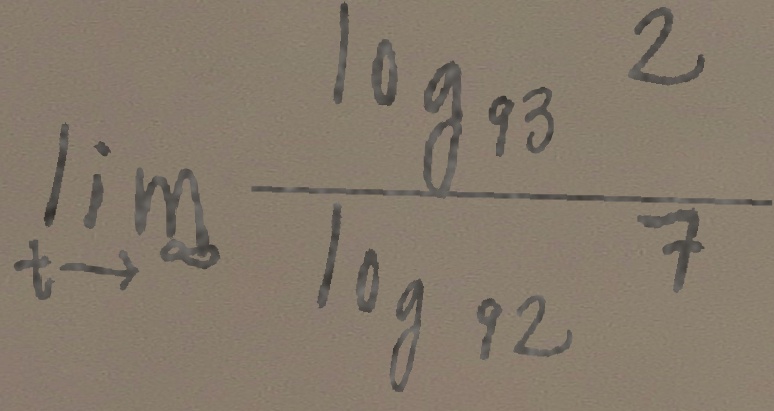 \lim_{t \to \infty} \frac{\log_{93} 2}{\log_{92} 7}